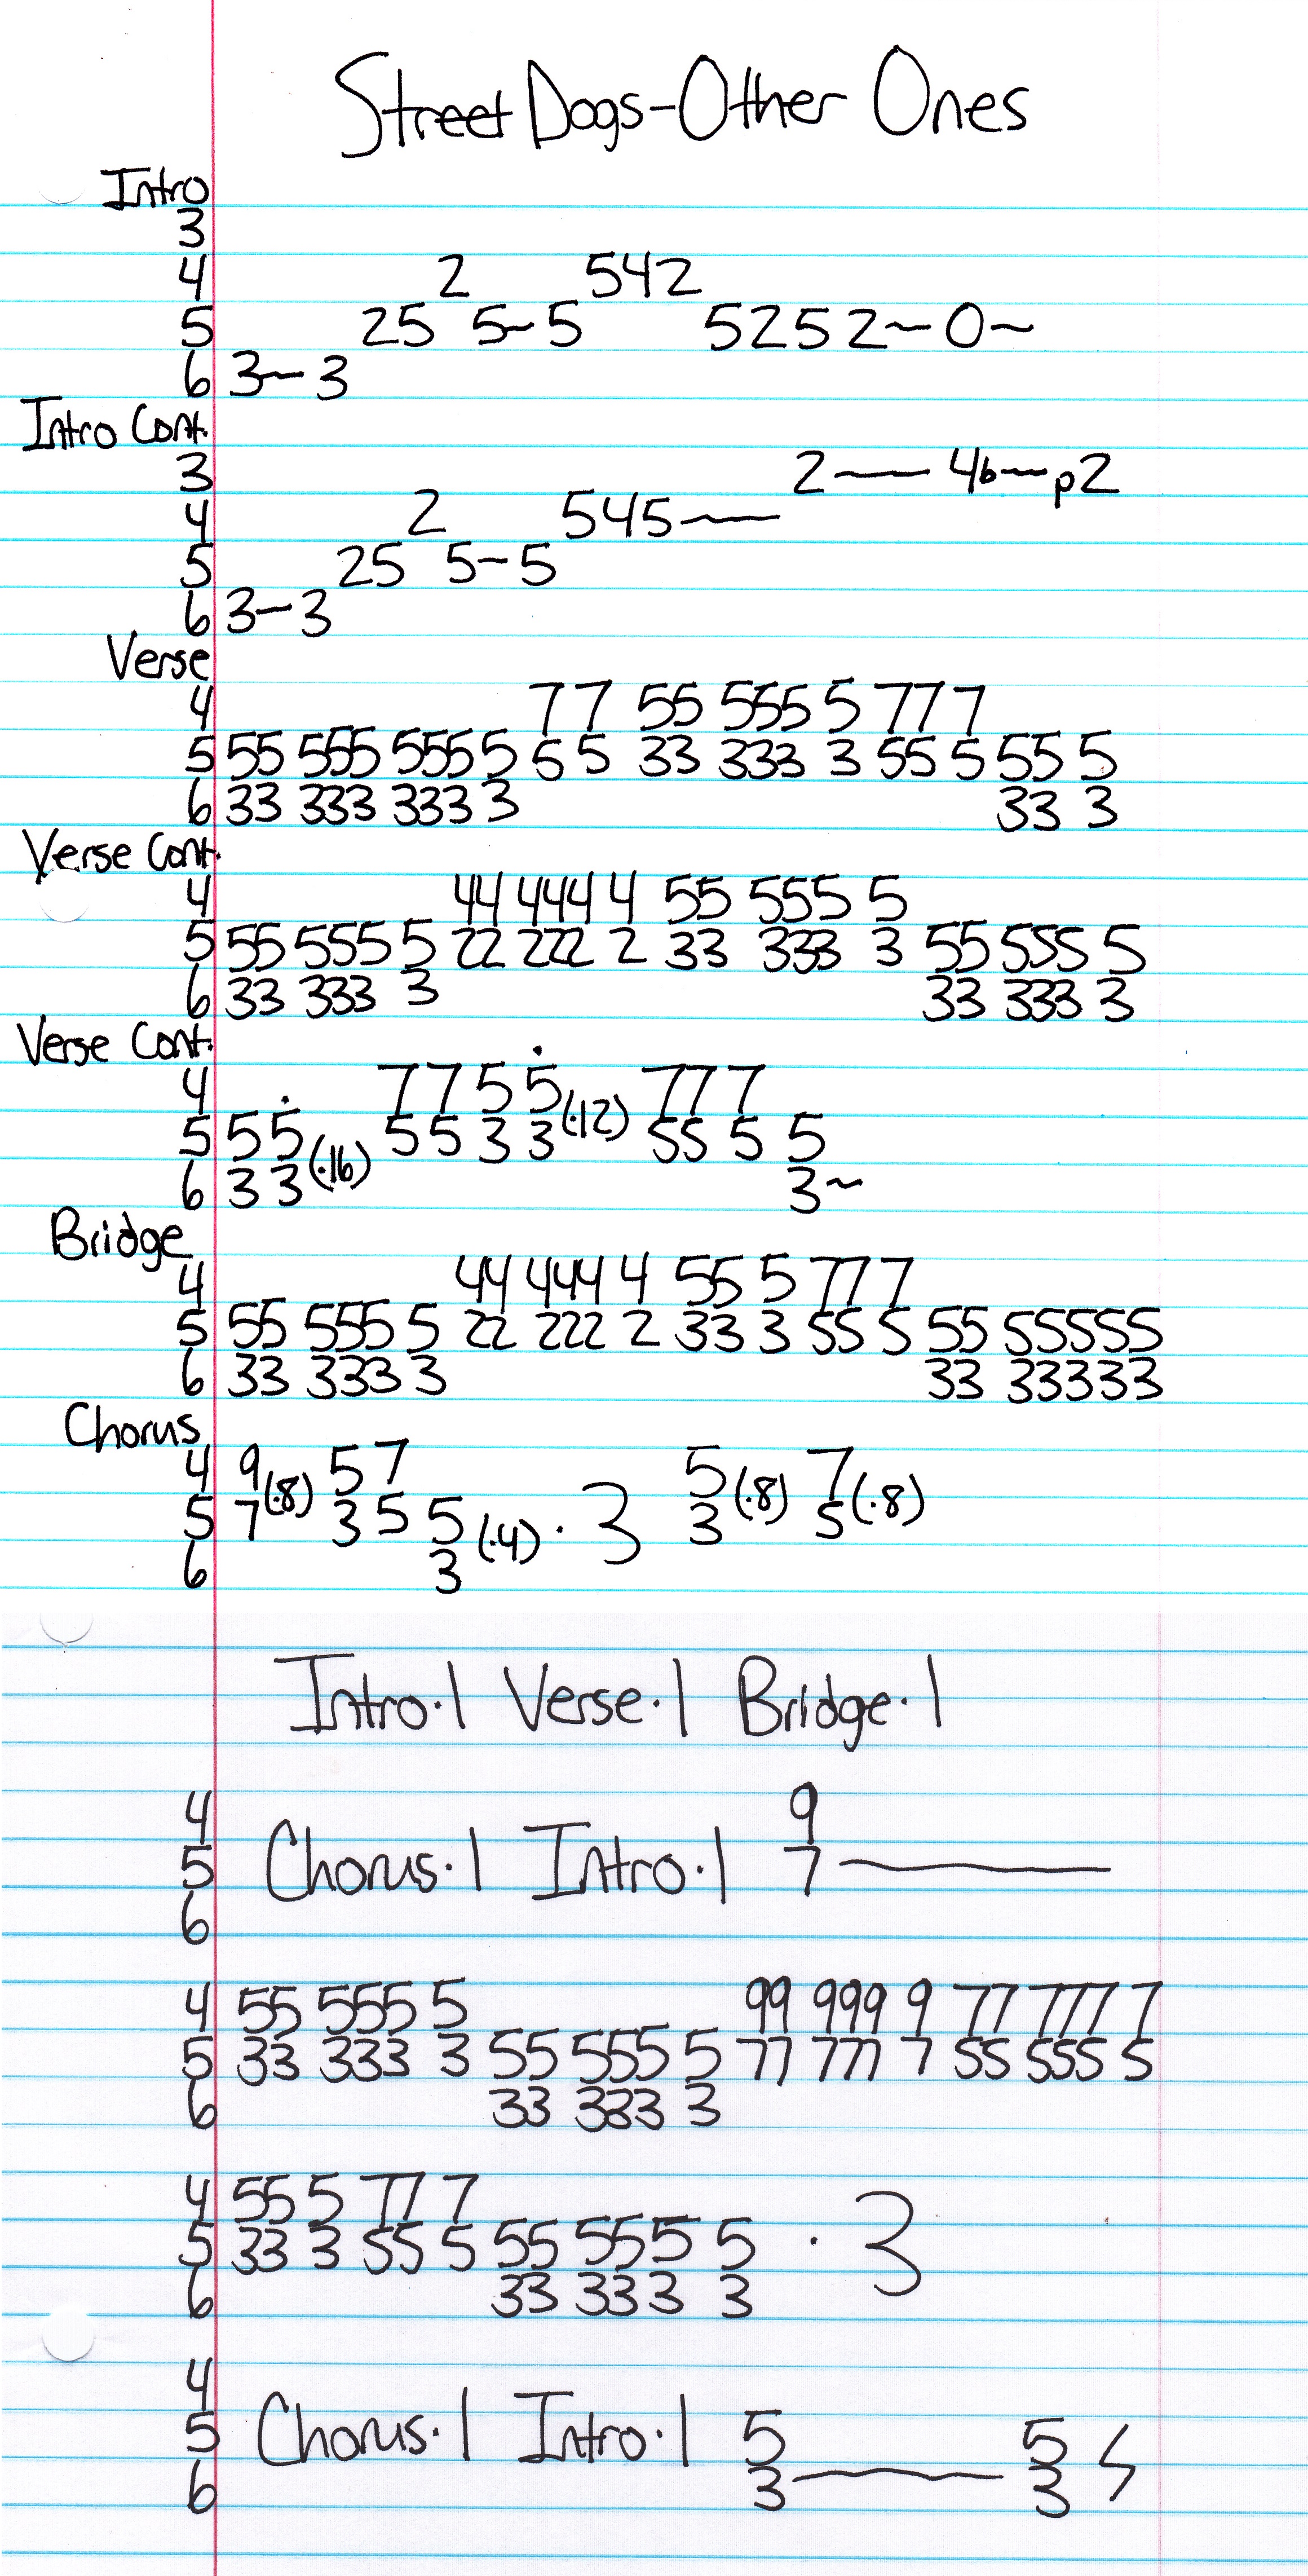 Street Dogs-Other Ones
Intro
3
4 2 542
5 25 5~5 5252~0~
6 3~3
Intro Cont.
3 2~4b~p2
4 2 545~
5 25 5~5
6 3~3
Verse
4 77 55 555 5 777
5 55 555 5555 5 5 33 333 3 55 5 55 5
6 33 333 333 3 33 3
Verse Cont.
4 44 444 4 55 555 5
5 55 555 5 22 222 2 33 333 3 55 555 5
6 33 333 3 33 333 3
Verse Cont.
4 7 7 5 5̇ (·12) 77 7
5 5 5̇ (·16) 5 5 3 3 55 5 5
6 3 3 3~
Bridge
4 44 444 4 55 5 77 7
5 55 555 5 22 222 2 33 3 55 5 55 55555
6 33 333 3 33 33333
Chorus
4 9 (·8) 5 7 5 (·8) 7 (·8)
5 7 3 5 5 (·4) · 3 3 5
6 3
Intro·1 Verse·1 Bridge·1
4 9
5 Chorus·1 Intro·1 7~
6
4 55 555 5 99 999 9 77 777 7
5 33 333 3 55 555 5 77 777 7 55 555 5
6 33 333 3
4 55 5 77 7
5 33 3 55 5 55 55 5 5 · 3
6 33 33 3 3
4
5 Chorus·1 Intro·1 5 5
6 3~3